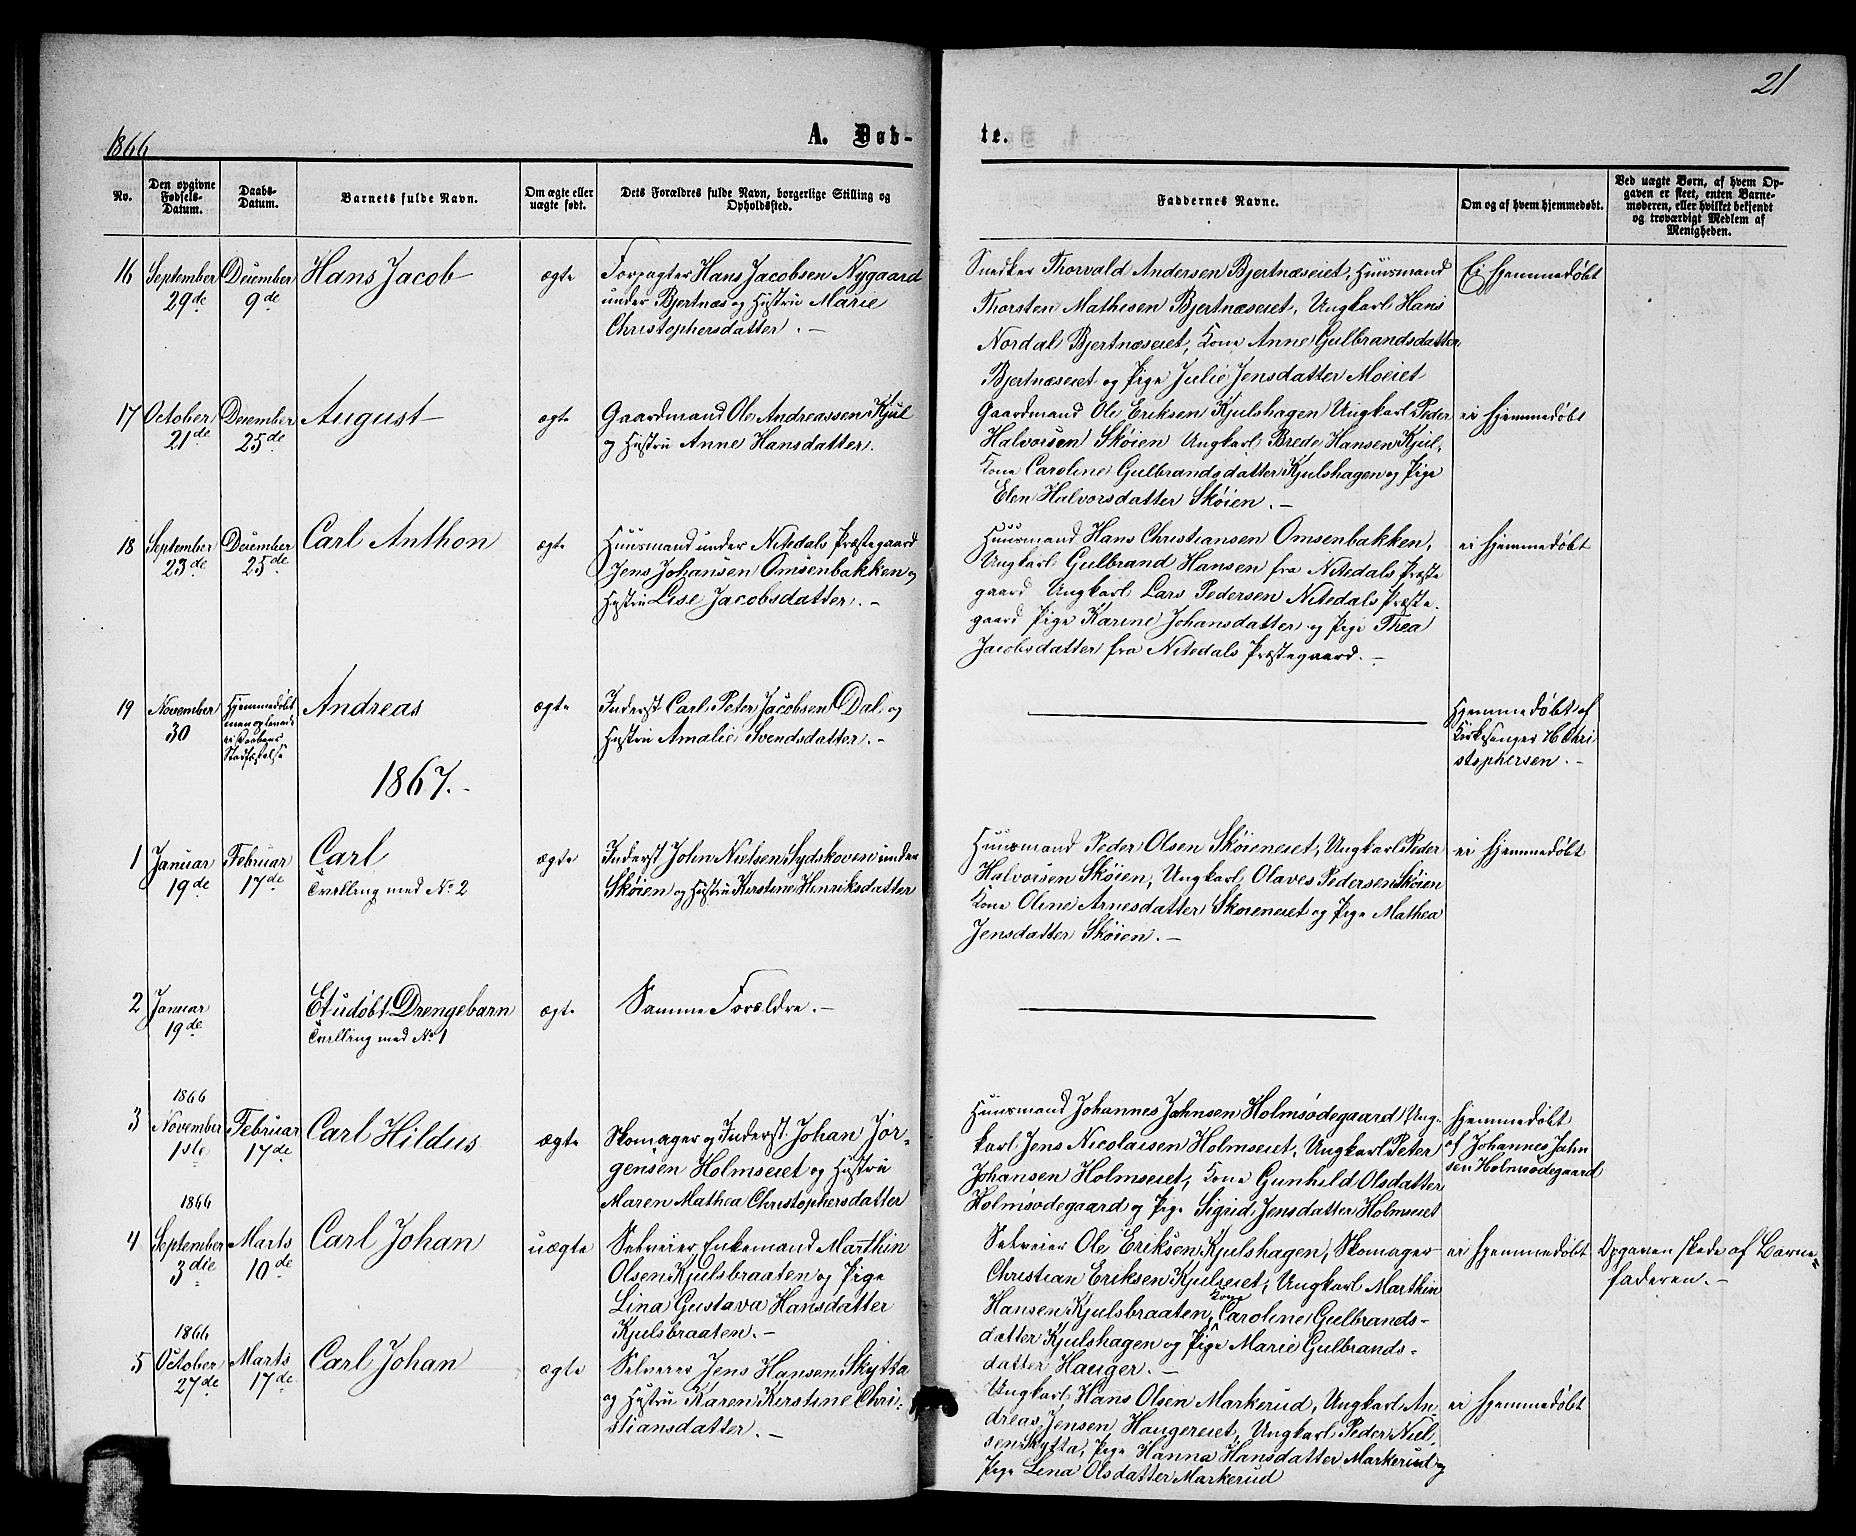 21
1866
A. Døb-
te.
No.
Den opgivne
Fødsels-
Datum.
Daabs-
Datum.
Barnets fulde Navn.
Om ægte eller
uægte født.
Dets Forældres fulde Navn, borgerlige Stilling og
Opholdssted.
Faddernes Navne.
Om og af hvem hjemmedøbt.
Ved uægte Børn, af hvem Op-
gaven er skeet, enten Barne-
moderen, eller hvilket bekjendt
og troværdigt Medlem af
Menigheden.
16
September
29de
December
9de
Hans Jacob
ægte
Forpagter Hans Jacobsen Nygaard
under Bjertnæs og Hustru Marie
Christophersdatter. –
Snedker Thorvald Andersen Bjertnæseiet, Huusmand
Thorsten Mathisen Bjertnæseiet, Ungkarl Hans
Nordal Bjertnæseiet, Kone Anne Gulbrandsdatter
Bjertnæseiet og Pige Julie Jensdatter Moeiet
Ei hjemmedøbt
17
October
21de
December
25de
August
ægte
Gaardmand Ole Andreassen Kjul
og Hustru Anne Hansdatter.
Gaardmand Ole Eriksen Kjulshagen Ungkarl Peder
Halvorsen Skøien Ungkarl Brede Hansen Kjul,
Kone Caroline Gulbrandsdatter Kjulshagen og Pige
Elen Halvorsdatter Skøien. –
ei hjemmedøbt
18
September
23de
December
25de
Carl Anthon
ægte
Huusmand under Nitedals Præstegaard
Jens Johansen Omsenbakken og
Hustru Lise Jacobsdatter. –
Huusmand Hans Christiansen Omsenbakken,
Ungkarl Gulbrand Hansen fra Nitedals Præste
gaard Ungkarl Lars Pedersen Nitedals Præste-
gaard Pige Karine Johansdatter og Pige Thea
Jacobsdatter fra Nitedals Præstegaard. –
ei hjemmedøbt
19
November
30
Hjemmedøbt
men oplevede
ei Daabens
Stadfæstelse
Andreas
ægte
Inderst Carl Peter Jacobsen Dal og
Hustru Amalie Svendsdatter. –
Hjemmedøbt af
Kirkesanger H Chri
stophersen. –
1867. –
1
Januar
19de
Februar
17de
Carl
Tvilling med No 2
ægte
Inderst John Nielsen Sydskoven under
Skøien og Hustru Kerstine Henriksdatter
Huusmand Peder Olsen Skøieneiet, Ungkarl Peder
Halvorsen Skøien, Ungkarl Olaves Pedersen Skøien
Kone Oline Arnesdatter Skøieneiet og Pige Mathea
Jensdatter Skøien. –
ei hjemmedøbt
2
Januar
19de
Et udøbt Drengebarn
Tvilling med No 1
ægte
Samme Forældre. –
3
1866
November
1ste
Februar
17de
Carl Hildus
ægte
Skomager og Inderst Johan Jør-
gensen Holmseiet og Hustru
Maren Mathea Christophersdatter
Huusmand Johannes Jahnsen Holmsødegaard Ung-
karl Jens Nicolaisen Holmseiet, Ungkarl Peter
Johansen Holmseiet, Kone Gunhild Olsdatter
Holmsødegaard og Pige Sigrid Jensdatter Holmseiet
hjemmedøbt
af Johannes Jahn
sen Holmsødegaard
4
1866
September
3die
Marts
10de
Carl Johan
uægte
Selveier, Enkemand Marthin
Olsen Kjulsbraaten og Pige
Lina Gustava Hansdatter
Kjulsbraaten. –
Selveier Ole Eriksen Kjulshagen, Skomager
Christian Eriksen Kjulseiet, Ungkarl Marthin
Hansen Kjulsbraaten, Kone Caroline Gulbrands-
datter Kjulshagen og Pige Marie Gulbrands-
datter Hauger. –
ei hjemmedøbt
Opgaven skede af Barne-
faderen. –
5
1866
October
27de
Marts
17de
Carl Johan
ægte
Selveier Jens Hansen Skytta
og Hustru Karen Kerstine Chri-
stiansdatter. –
Ungkarl Hans Olsen Markerud, Ungkarl An
dreas Jensen Haugereiet, Ungkarl Peder Niel-
sen Skytta, Pige Hanna Hansdatter Markerud og
Pige Lena Olsdatter Markerud
ei hjemmedøbt